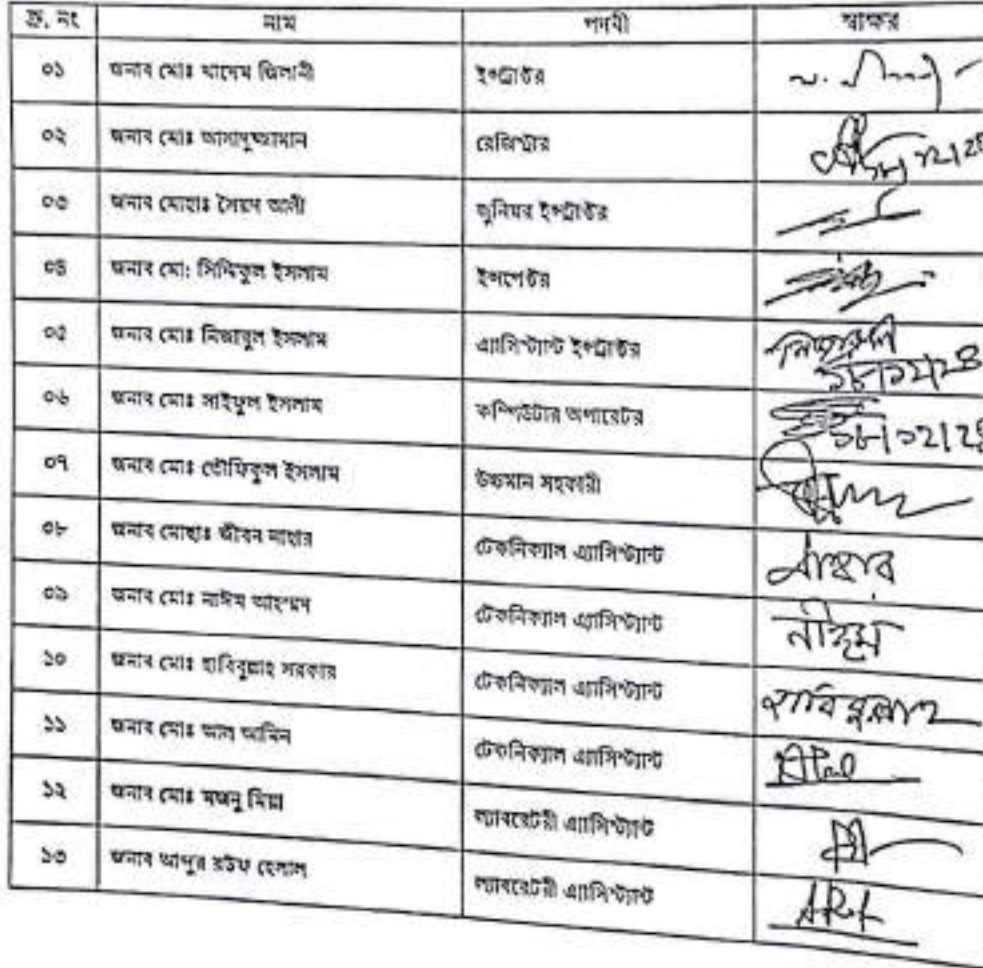 ক্র. নং নাম পদবী স্বাক্ষর
০১ জনাব মোঃ খাদেম জিলানী ইন্সট্রাক্টর
০২ জনাব মোঃ আসাদুজ্জামান রেজিস্ট্রার
০৩ জনাব মোহাঃ সৈয়দ আলী জুনিয়র ইন্সট্রাক্টর
০৪ জনাব মো: সিদ্দিকুল ইসলাম ইন্সপেক্টর
০৫ জনাব মোঃ মিজাবুল ইসলাম এ্যাসিস্ট্যান্ট ইন্সট্রাক্টর
০৬ জনাব মোঃ সাইফুল ইসলাম কম্পিউটার অপারেটর
০৭ জনাব মোঃ তৌফিকুল ইসলাম উচ্চমান সহকারী
০৮ জনাব মোহাঃ জীবন নাহার টেকনিক্যাল এ্যাসিস্ট্যান্ট
০৯ জনাব মোঃ নাঈম আহম্মদ টেকনিক্যাল এ্যাসিস্ট্যান্ট নাঈম
১০ জনাব মোঃ হাবিবুল্লাহ সরকার টেকনিক্যাল এ্যাসিস্ট্যান্ট হাবিবুল্লাহ
১১ জনাব মোঃ আল আমিন টেকনিক্যাল এ্যাসিস্ট্যান্ট
১২ জনাব মোঃ মজনু মিয়া ল্যাবরেটরী এ্যাসিস্ট্যান্ট
১৩ জনাব আব্দুর রউফ হেলাল ল্যাবরেটরী এ্যাসিস্ট্যান্ট